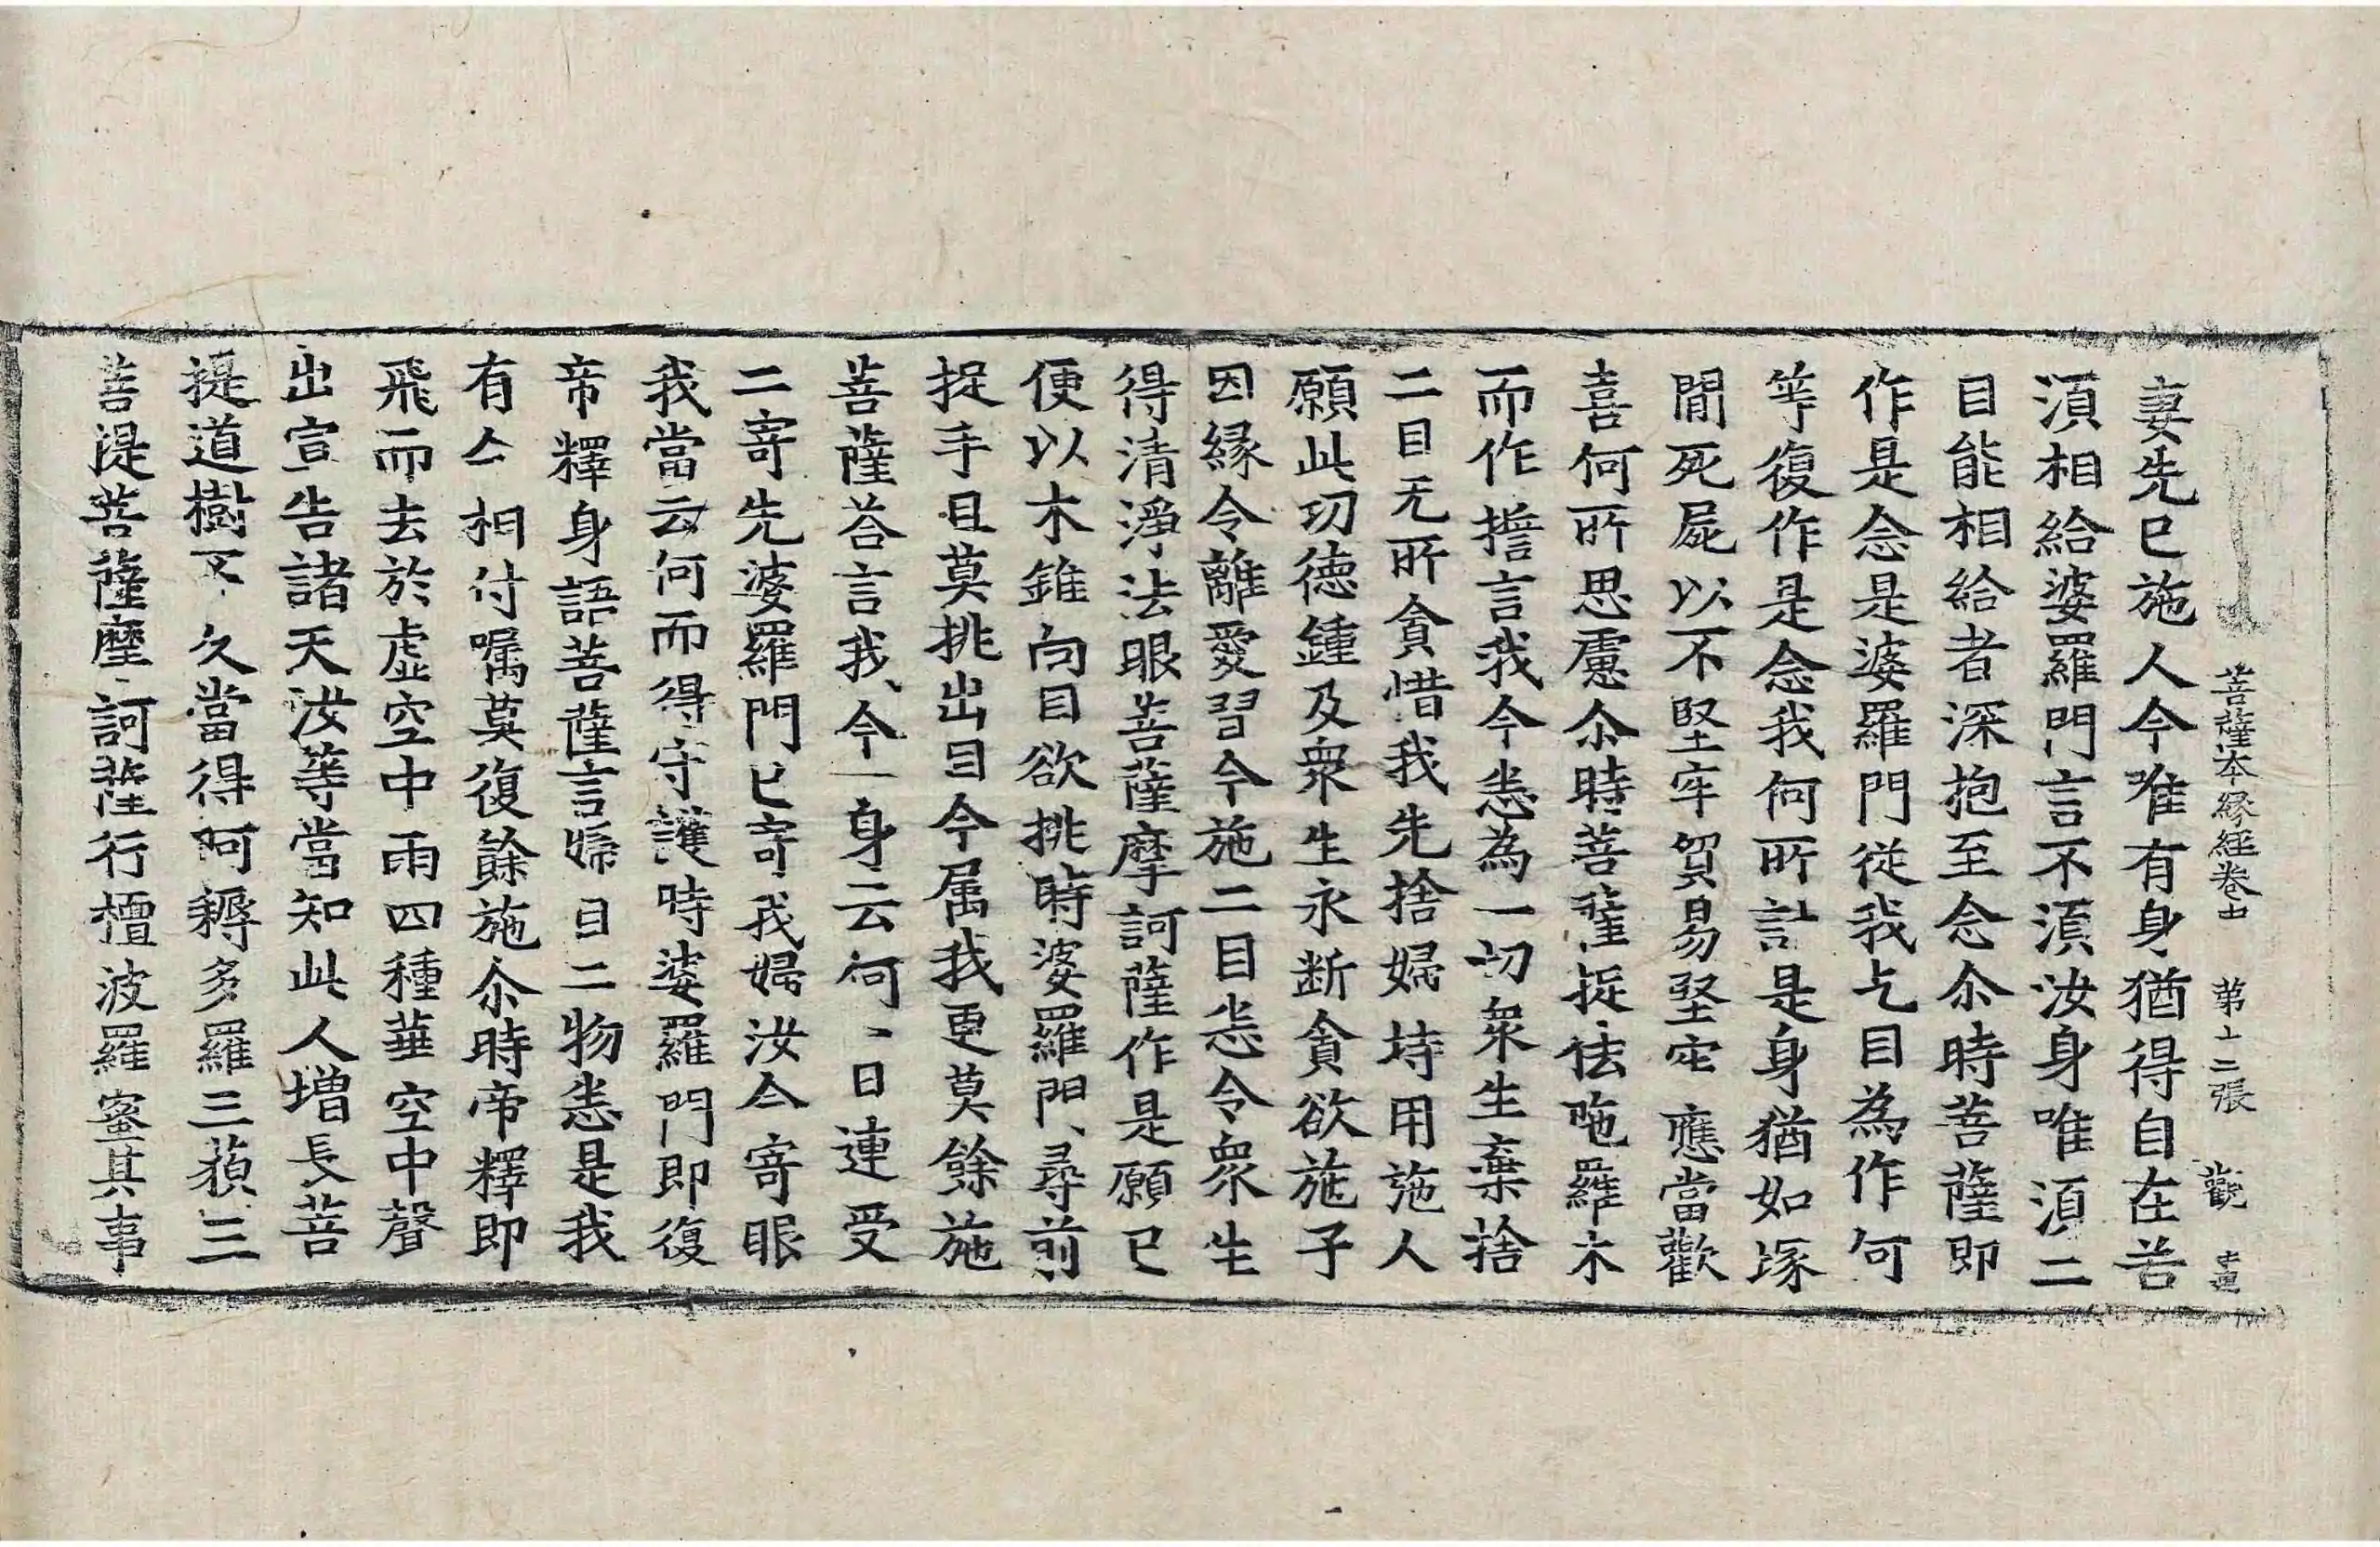 菩薩本縁經卷中 第十二張 觀
妻先已施人今唯有身猶得自在若
湏相給婆羅門言不湏汝身唯湏二
目能相給者深抱至念尒時菩薩即
作是念是婆羅門從我乞目為作何
等復作是念我何所計是身猶如塚
間死屍以不堅牢貿易堅牢應當歡
喜何所思慮尒時菩薩捉佉陁羅木
而作擔言我今悉為一切衆生棄捨
二目无所貪惜我先捨婦持用施人
願此功德鍾及衆生永断貪欲施子
因縁令離愛習今施二目悉令衆生
得清淨法眼菩薩摩訶薩作是願已
便以木錐向目欲挑時婆羅門尋前
捉手且莫挑出目今属我更莫餘施
菩薩荅言我今一身云何一日連受
二寄先婆羅門已寄我婦汝今寄眼
我當云何而得守護時婆羅門即復
帝釋身語菩薩言婦目二物悉是我
有今相付嘱莫復餘施尒時帝釋即
飛而去於虛空中雨四種華空中聲
出宣告諸天汝等當知此人增長菩
提道樹不久當得阿耨多羅三藐三
菩提菩薩摩訶薩行檀波羅蜜其事